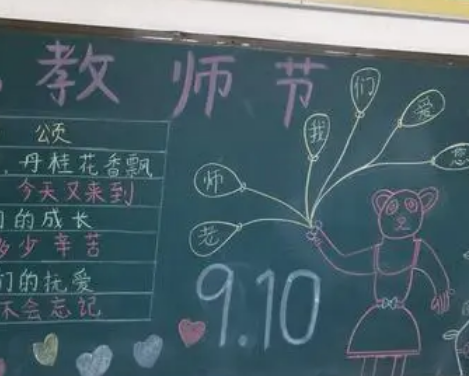 教师节
颂
,丹桂花香飘
今天又来到
们的成长
多少辛苦
们的抚爱
不会忘记
老师我们爱您
9.10